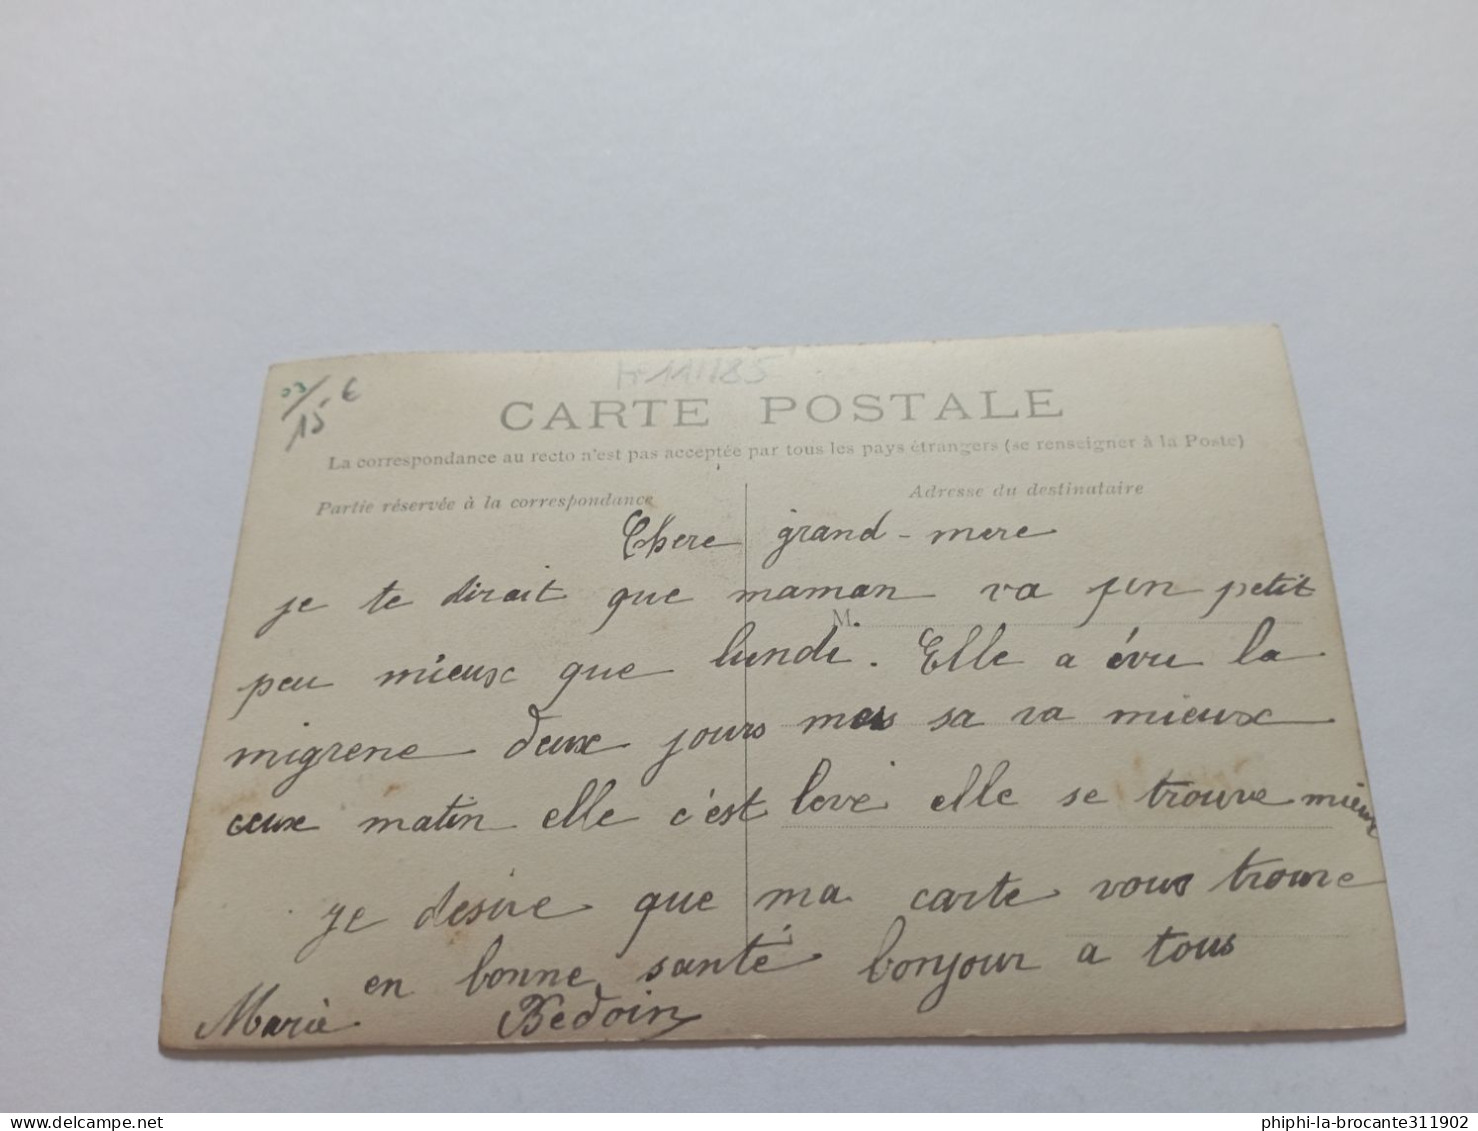 H 11185
03/15 €
CARTE POSTALE
La correspondance au recto n'est pas acceptée par tous les pays étrangers (se renseigner à la Poste)
Partie réservée à la correspondance
Adresse du destinataire
M.
Chere grand-mere
je te dirait que maman va petit
peu mieux que lundi. Elle a évu la
migrene deux jours mais sa va mieux
ceux matin elle c'est levé elle se trouve mieux
je desire que ma carte vous trouve
en bonne santé bonjour a tous
Marie Bedoin
www.delcampe.net
phiphi-la-brocante311902